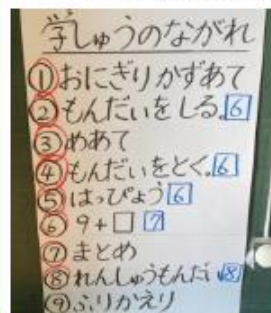 学しゅうのながれ
①おにぎりかずあて
②もんだいをしる。6
③めあて
④もんだいをとく。6
⑤はっぴょう6
⑥9+□7
⑦まとめ
⑧れんしゅうもんだい8
⑨ふりかえり